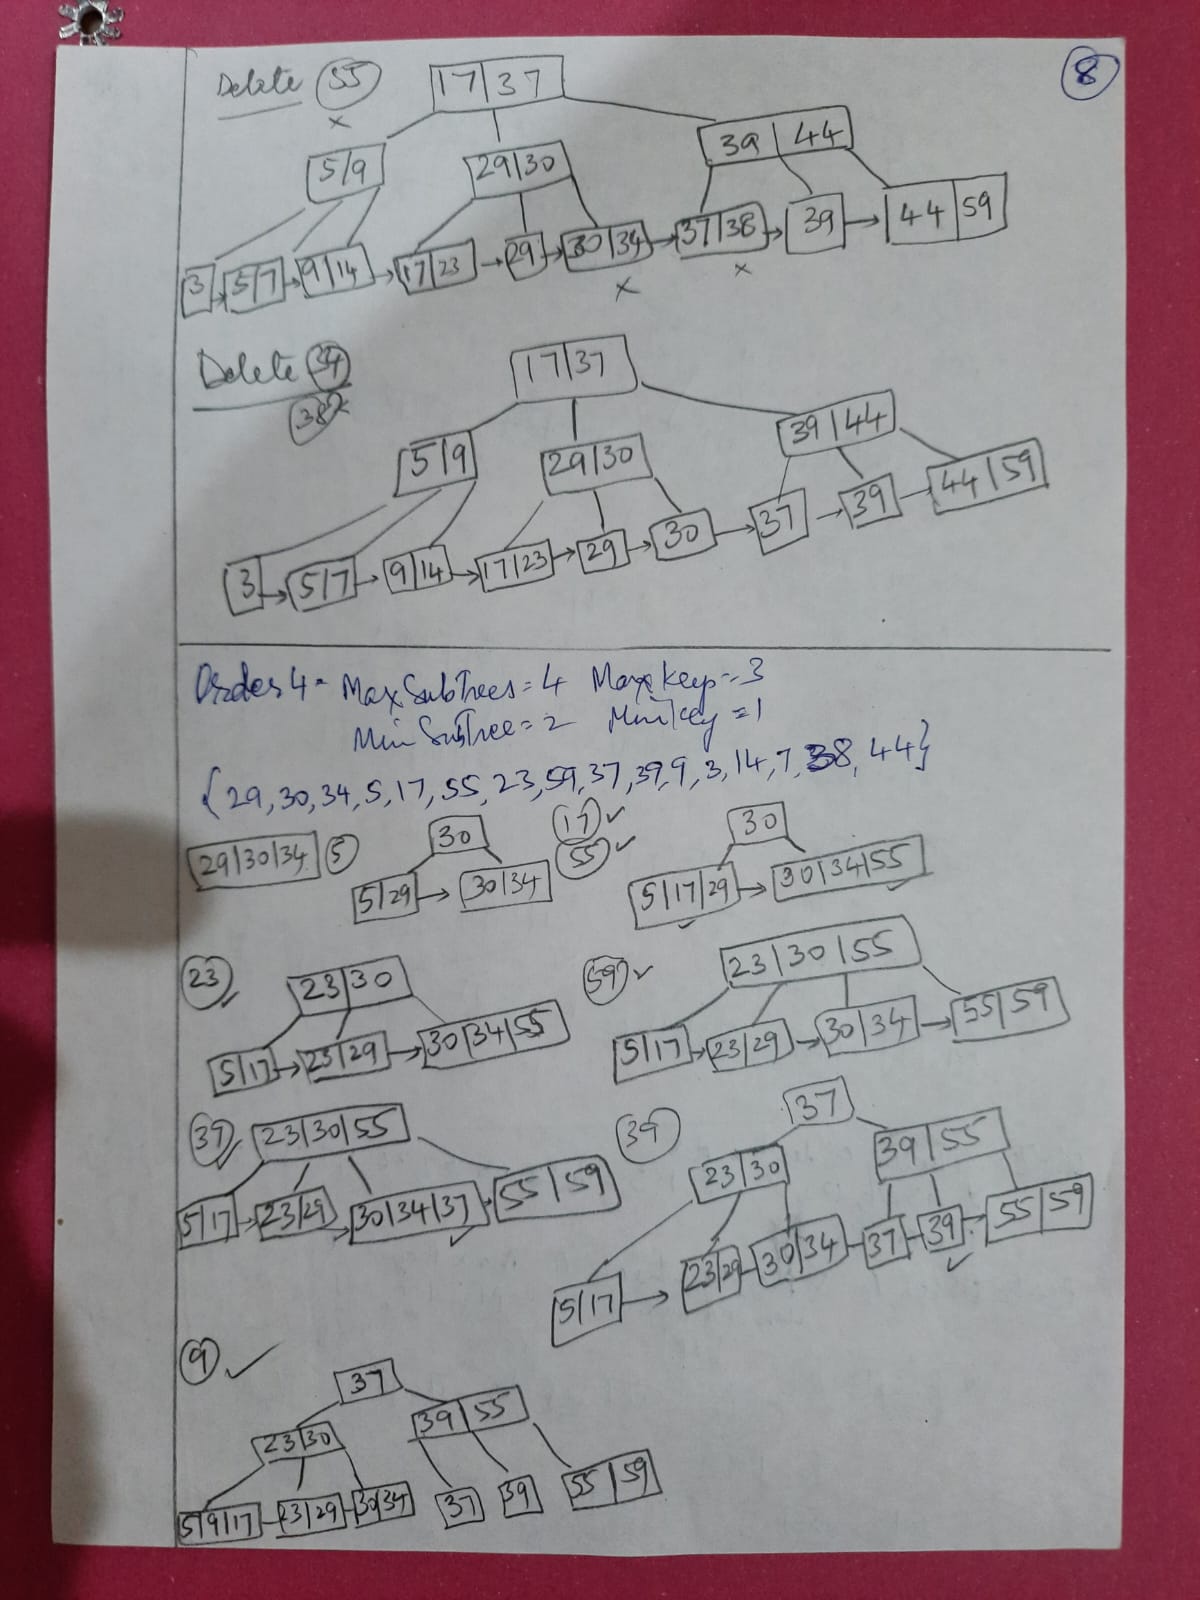 8
Delete 55
17|37
×
5|9 29|30 39|44
3 → 5|7 → 9|14 → 17|23 → 29 → 30|34 → 37|38 → 39 → 44|59
× ×
Delete 34
38
17|37
5|9 29|30 39|44
3 → 5|7 → 9|14 → 17|23 → 29 → 30 → 37 → 39 → 44|59
Order 4 - Max SubTrees = 4 Max keys = 3
Min SubTree = 2 Min key = 1
{29, 30, 34, 5, 17, 55, 23, 59, 37, 39, 9, 3, 14, 7, 38, 44}
29|30|34 5
30
5|29 → 30|34
17 ✓
55 ✓
30
5|17|29 → 30|34|55
23 ✓
23|30
5|17 → 23|29 → 30|34|55
59 ✓
23|30|55
5|17 → 23|29 → 30|34 → 55|59
37 ✓
23|30|55
5|17 → 23|29 → 30|34|37 → 55|59
39
37
23|30 39|55
5|17 → 23|29 - 30|34 - 37 - 39 - 55|59
9 ✓
37
23|30 39|55
5|9|17 - 23|29 - 30|34 37 39 55|59